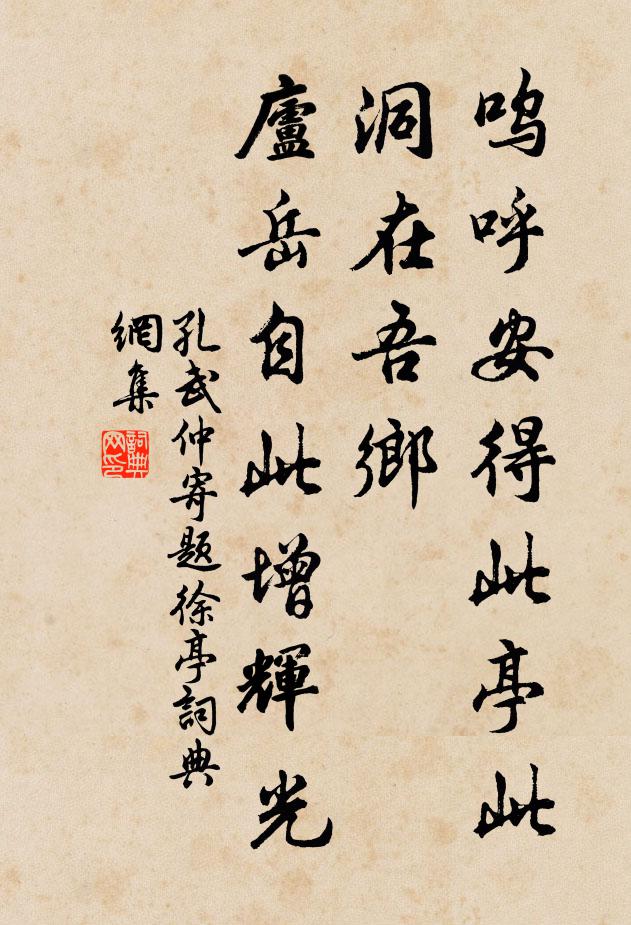 呜呼安得此亭此
洞在吾鄉
廬岳自此增輝光
孔武仲寄题徐亭詞典
網集
詞典
网印